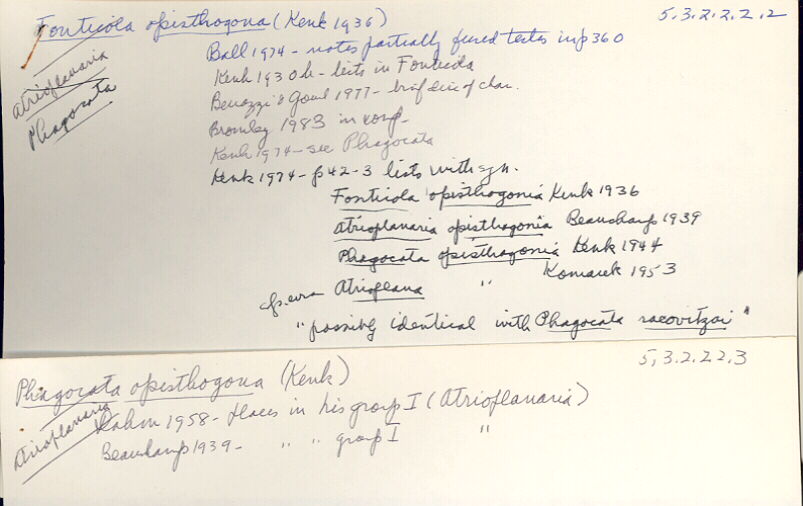 Fonticola opisthogona (Kenk 1936) 5.3.2.2.2.2
Atrioplanaria
Phagocata
Ball 1974 - notes partially fused testes in p360
Kenk 1930b - lists in Fonticola
Benazzi & Gourl 1977 - brief disc of char.
Bromley 1983 in comp.
Kenk 1974 - see Phagocata
Kenk 1974 - p42-3 lists with syn.
Fonticola opisthogona Kenk 1936
Atrioplanaria opisthogonia Beauchamp 1939
Phagocata opisthogonia Kenk 1944
Atrioplana " Komarek 1953
"possibly identical with Phagocata racovitzai"
Phagocata opisthogona (Kenk) 5,3.2.2.2.3
Atrioplanaria
Dahm 1958 - places in his group I (Atrioplanaria)
Beauchamp 1939 - " " group I "